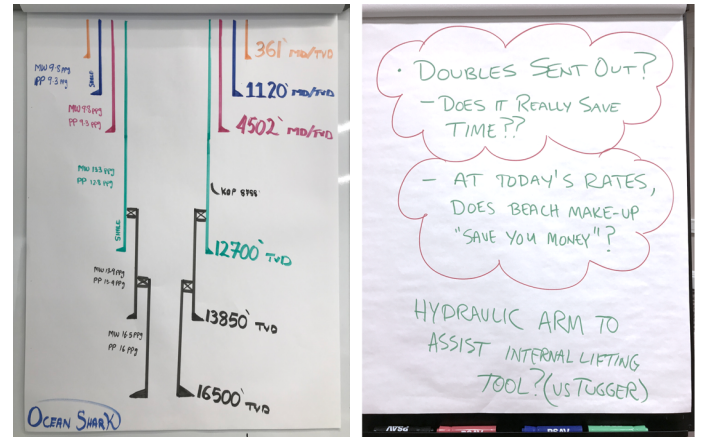 361' MD/TVD
MW 9.8 ppg
PP 9.3 ppg
SHALE
1120' MD/TVD
MW 9.8 ppg
PP 9.3 ppg
4502' MD/TVD
MW 13.3 ppg
PP 12.8 ppg
KOP 8788'
SHALE
12700' TVD
PP 13.4 ppg
13850' TVD
MW 16.5 ppg
PP 16 ppg
16500' TVD
OCEAN SHARK
• DOUBLES SENT OUT?
- DOES IT REALLY SAVE
TIME??
- AT TODAY'S RATES,
DOES BEACH MAKE-UP
"SAVE YOU MONEY"?
HYDRAULIC ARM TO
ASSIST INTERNAL LIFTING
TOOL? (VS TUGGER)
PSAV